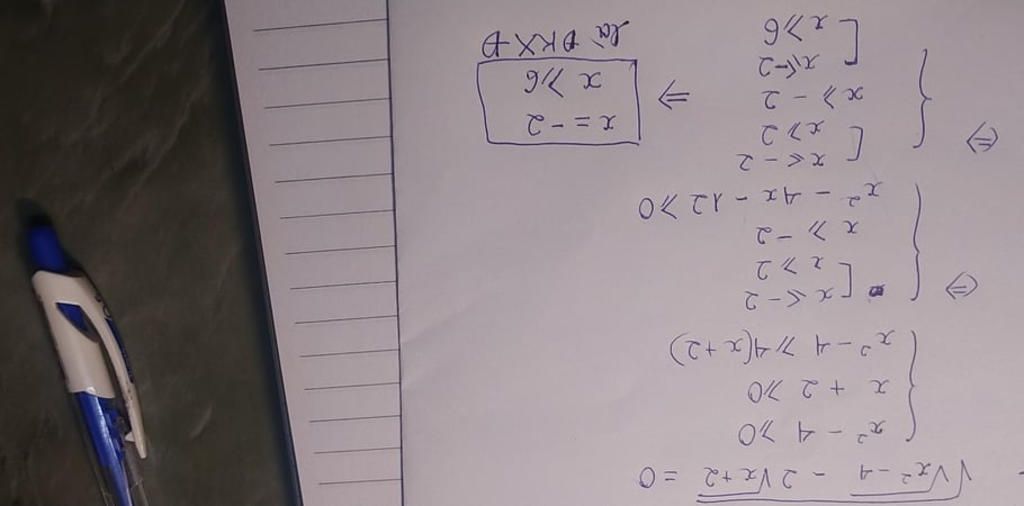 √(√(x² - 4) - 2√(x+2)) = 0
{ x² - 4 ⩾ 0
x + 2 ⩾ 0
x² - 4 ⩾ 4(x+2)
⇔ { [ x ⩽ -2
x ⩾ 2
x ⩾ -2
x² - 4x - 12 ⩾ 0
⇔ { [ x ⩽ -2
x ⩾ 2
x ⩾ -2
[ x ⩽ -2
x ⩾ 6
⇒ x = -2
x ⩾ 6
là ĐKXĐ